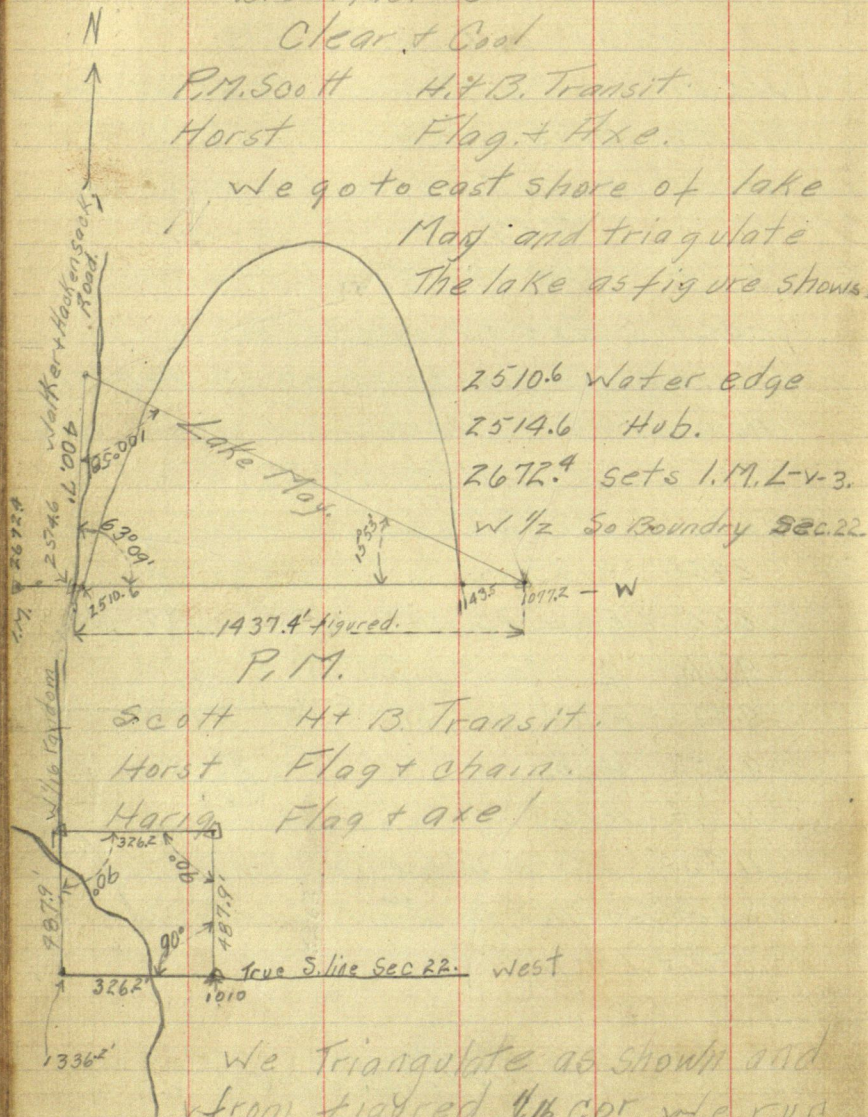 N
Clear & Cool
P.M. Scott H.&B. Transit.
Horst Flag & Axe.
We go to east shore of lake
Mary and triagulate
The lake as figure shows
Walker & Hackensack
Road.
400.7'
2510.6 Water edge
2514.6 Hub.
2672.4 sets I.M. L-V-3.
W 1/2 So Boundry Sec. 22.
Lake May.
63° 09'
I.M. 2672.4
2510.6
1143.5
1077.2 - W
1437.4' figured.
P.M.
Scott H & B. Transit.
Horst Flag & chain.
Harig Flag & axe
W 1/16 random
326.2
90°
90°
487.9'
487.9'
90°
True S. line Sec 22. West
326.2'
1010
1336.2'
We Triangulate as shown and
from figured 1/16 cor we run